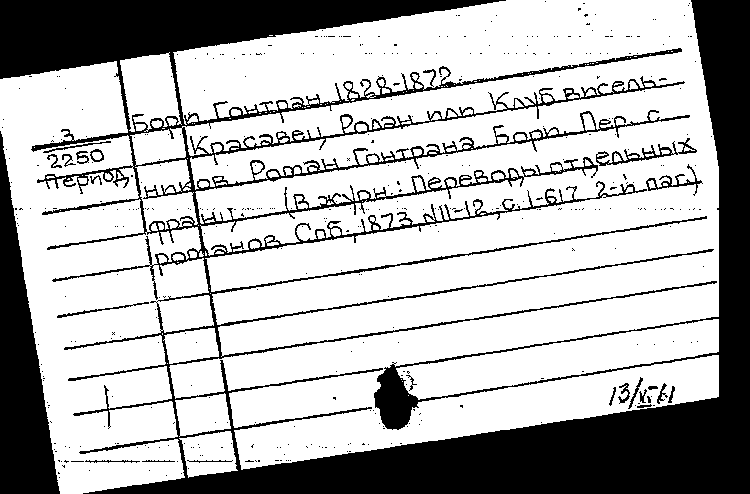 Бори, Гонтран, 1828-1872.
З
2250
период.
Красавец Ролан или Клуб висель-
ников. Роман Гонтрана Бори. Пер. с
франц. (В журн.: Переводы отдельных
романов Спб., 1873, N11-12, с. 1-617 2-й паг.)
13/XI-61